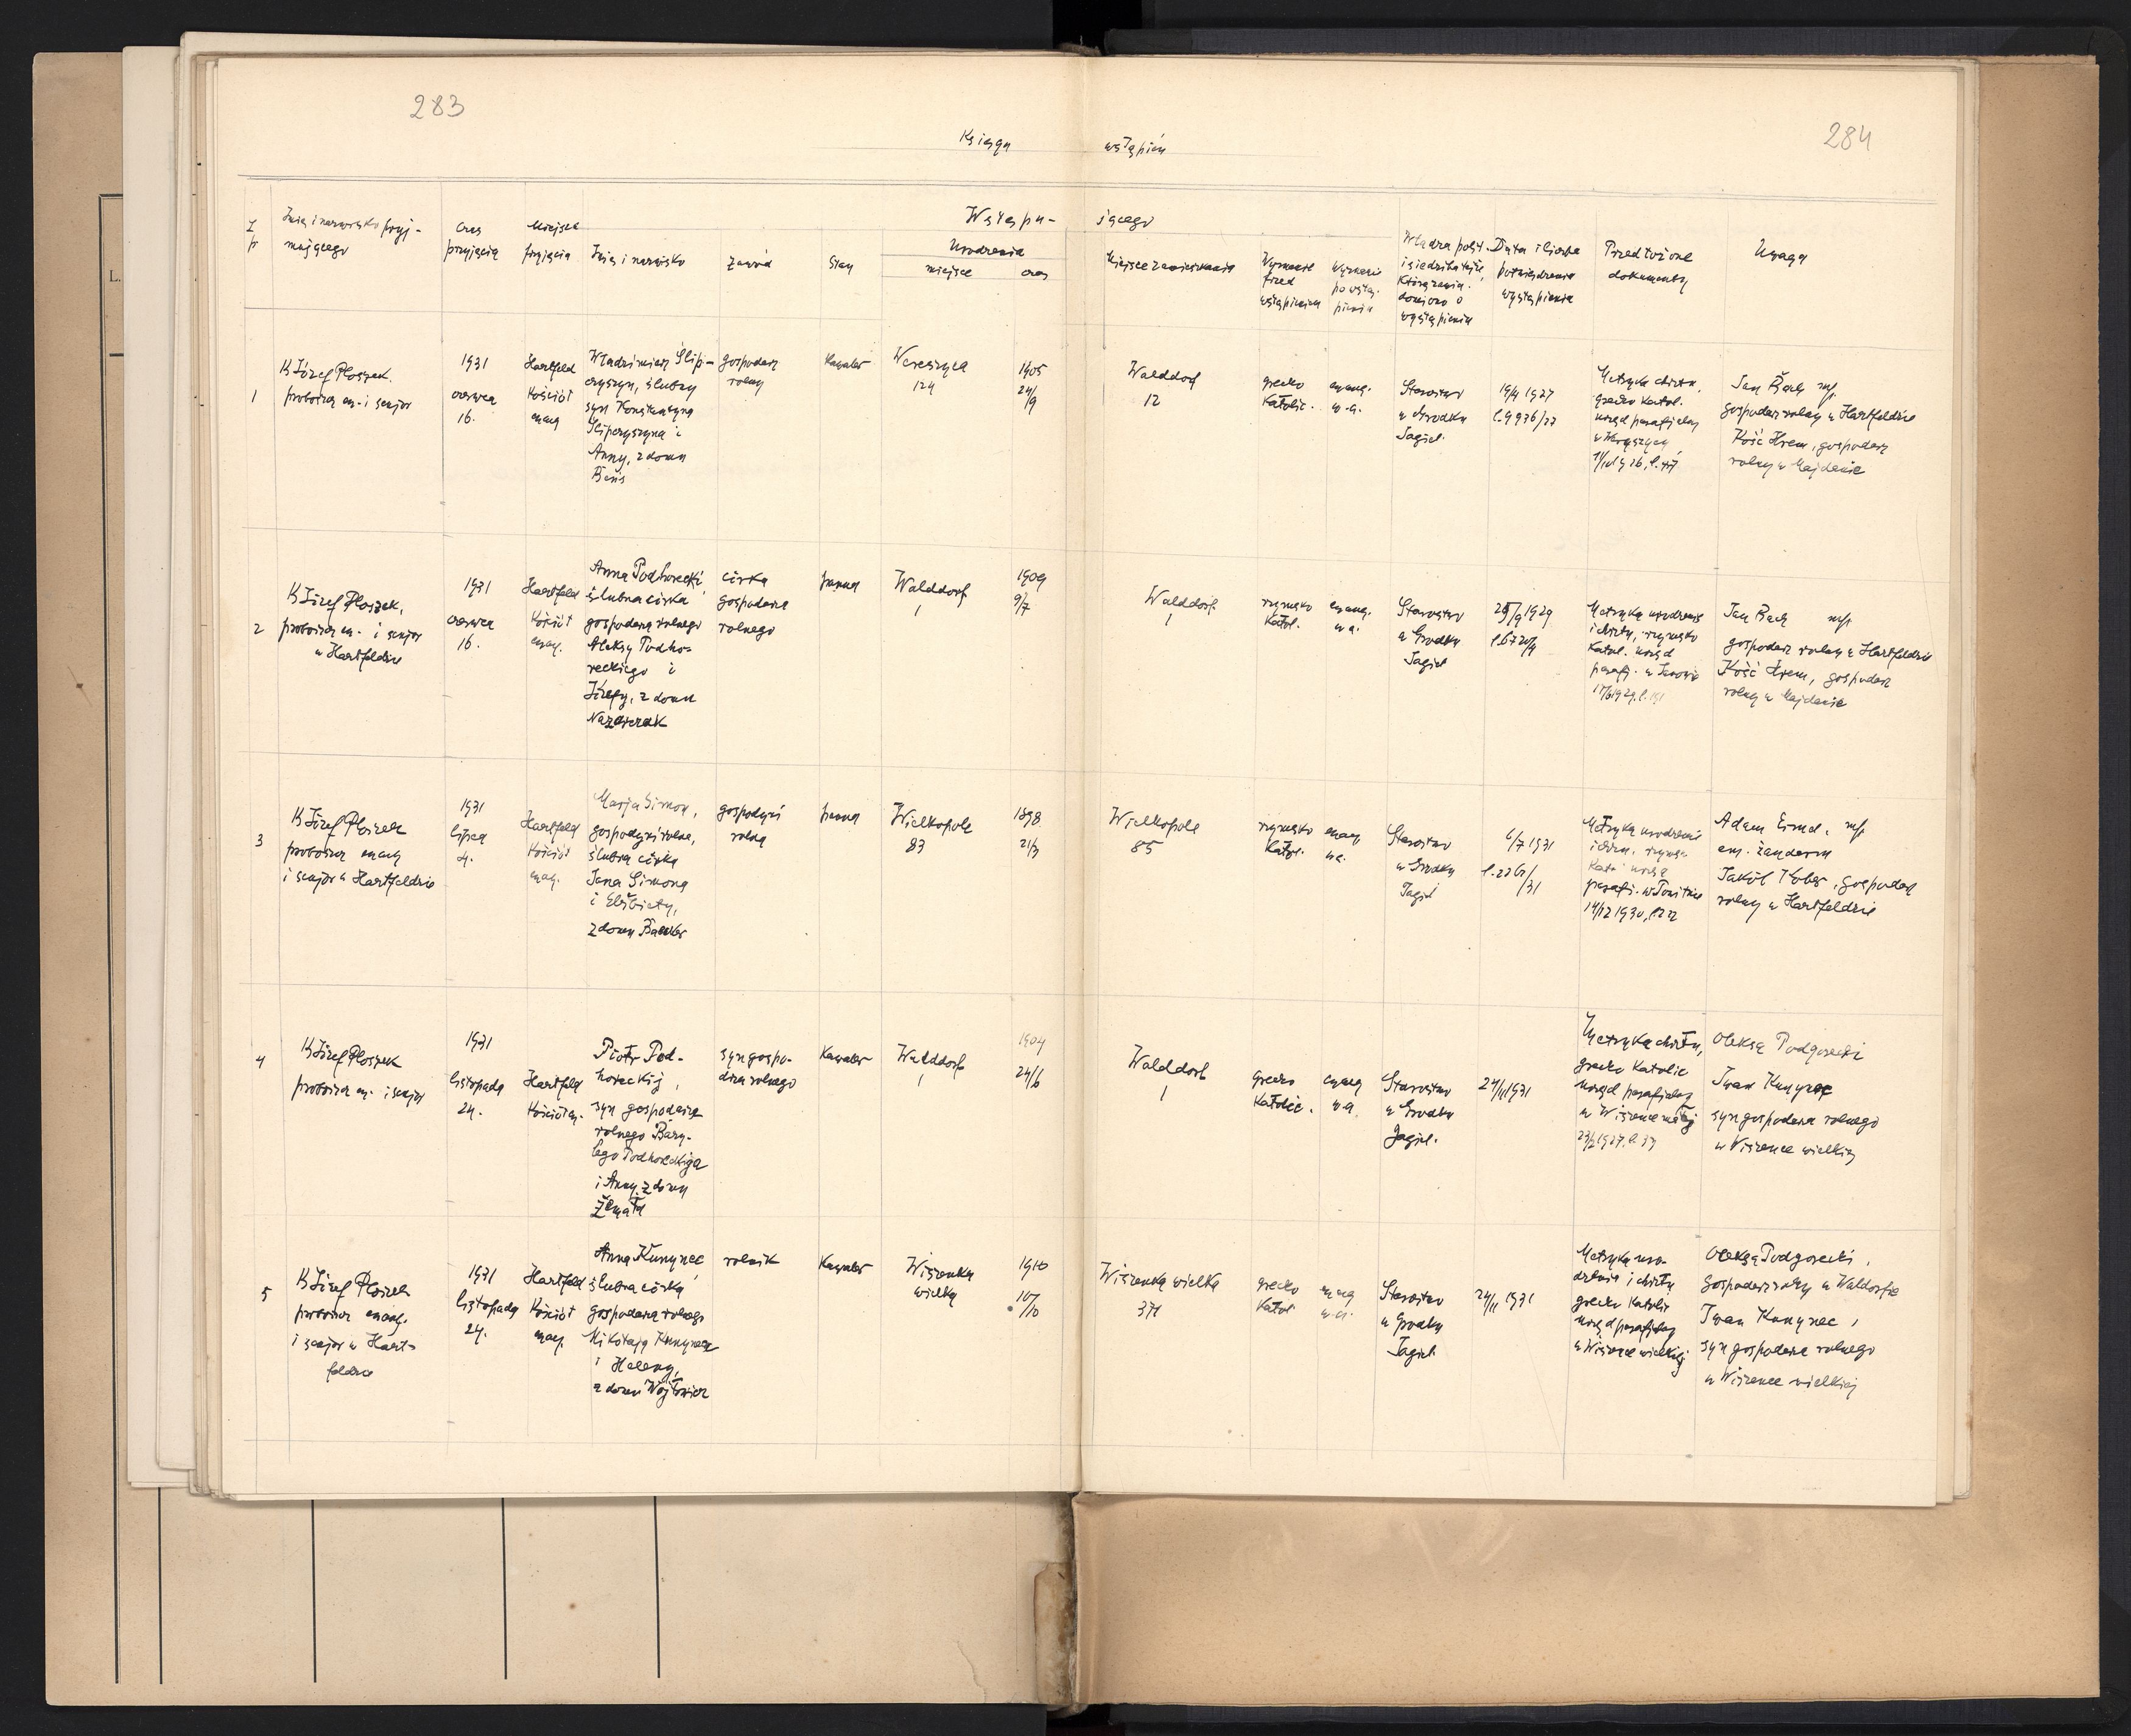 283
284
Księga wstąpień
L
p
Imię i nazwisko przyj-
mującego
czas
przyjęcia
Miejsce
przyjęcia
Wstępu- jącego
Imię i nazwisko
Zawód
Stan
Urodzenia
miejsce
czas
Miejsce zamieszkania
Wyznanie
przed
wstąpieniem
Wyznanie
po wstą-
pieniu
Władza polit.
i siedziba tejże,
która zawia-
domiono o
wystąpieniu
Data i liczba
potwierdzenia
wystąpienia
Przedłożone
dokumenty
Uwaga
1
X Józef Ploszek.
proboszcz ew. i senjor
1931
czerwca
16.
Hartfeld
Kościół
ewang
Władzimierz Ślip-
czyszyn, ślubny
syn Konstantyna
Slipczyszyna i
Anny, z domu
Baus
gospodarz
rolny
Kawaler
Wereszyca
124
1905
24/9
Walddorf
12
grecko
Katolic.
ewang.
w. a.
Starostwo
w Grodku
Jagiel.
19/4 1927
l. 9936/27
Metryka chrztu,
grecko Katol.
urząd parafjalny
Jan Bach mp.
gospodarz rolny w Hartfeldzie
Kość Hrem, gospodarz
rolny w Majdanie
2
X Józef Ploszek,
proboszcz ew. i senjor
w Hartfeldzie
1931
czerwca
16.
Hartfeld
Kościół
ewang.
Anna Podhorecki,
ślubna córka
gospodarza rolnego
Aleksy Podho-
reckiego i
Józefy, z domu
Nazarczak
córka
gospodarza
rolnego
panna
Walddorf
1
1909
9/7
Walddorf
1
rzymsko
Katol.
ewang.
w a.
Starostwo
w Grodku
Jagiel
25/9 1929
Metryka urodzenia
i chrztu, rzymsko
Katol. urząd
parafj. w Janowie
17/6 1929, l. 151
Jan Bach mp.
gospodarz rolny w Hartfeldzie
Kość Hrem, gospodarz
rolny w Majdanie
3
X Józef Ploszek
proboszcz ewang
i senjor w Hartfeldzie
1931
lipca
4.
Hartfeld
Kościół
ewang.
Marja Simon,
gospodyni rolna,
ślubna córka
Jana Simona
i Elżbiety,
z domu Baecker
gospodyni
rolna
panna
Wielkopole
83
1898
21/3
Wielkopole
85
rzymsko
Katol.
ewang
w a.
Starostwo
w Grodku
Jagiel
6/7 1931
/31
Metryka urodzenia
i chrztu, rzymsko
Kato urząd
parafj.
14/12 1930, l. 222
mp.
em. żandarm
rolny w Hartfeldzie
4
X Józef Ploszek
proboszcz ew. i senjor
1931
listopada
24.
Hartfeld
Kościół ew.
Piotr Pod-
horeckij,
syn gospodarza
rolnego Bazy-
lego Podhoreckiga
i Anny z domu
Żemała
syn gospo-
darza rolnego
Kawaler
Walddorf
1
1904
24/6
Walddorf
1
grecko
Katolic.
ewang
w a.
Starostwo
w Grodku
Jagiel.
24/11 1931
Metryka chrztu,
grecko Katolic
urząd parafjalny
w Wiszence małej
23/2 1927, l. 39
Oleksa Podgorecki
Iwan Kunynec
syn gospodarza rolnego
w Wiszence wielkiej
5
X Józef Ploszek
proboszcz ewang.
i senjor w Hart-
feldzie
1931
listopada
24.
Hartfeld
Kościół
ewang.
Anna Kunynec,
ślubna córka
gospodarza rolnego
Mikołaja Kunynec
i Heleny,
z domu Wójtowicz
rolnik
Kawaler
Wiszenka
wielka
1910
10/10
Wiszenka wielka
371
grecko
Katol
ewang
w. a.
Starostwo
w Grodku
Jagiel.
24/11 1931
Metryka uro-
dzenia i chrztu
grecko Katolic
urząd parafjalny
w Wiszence wielkiej
Oleksa Podgorecki,
gospodarz rolny w Waldorfie
Iwan Kunynec,
syn gospodarza rolnego
w Wiszence wielkiej